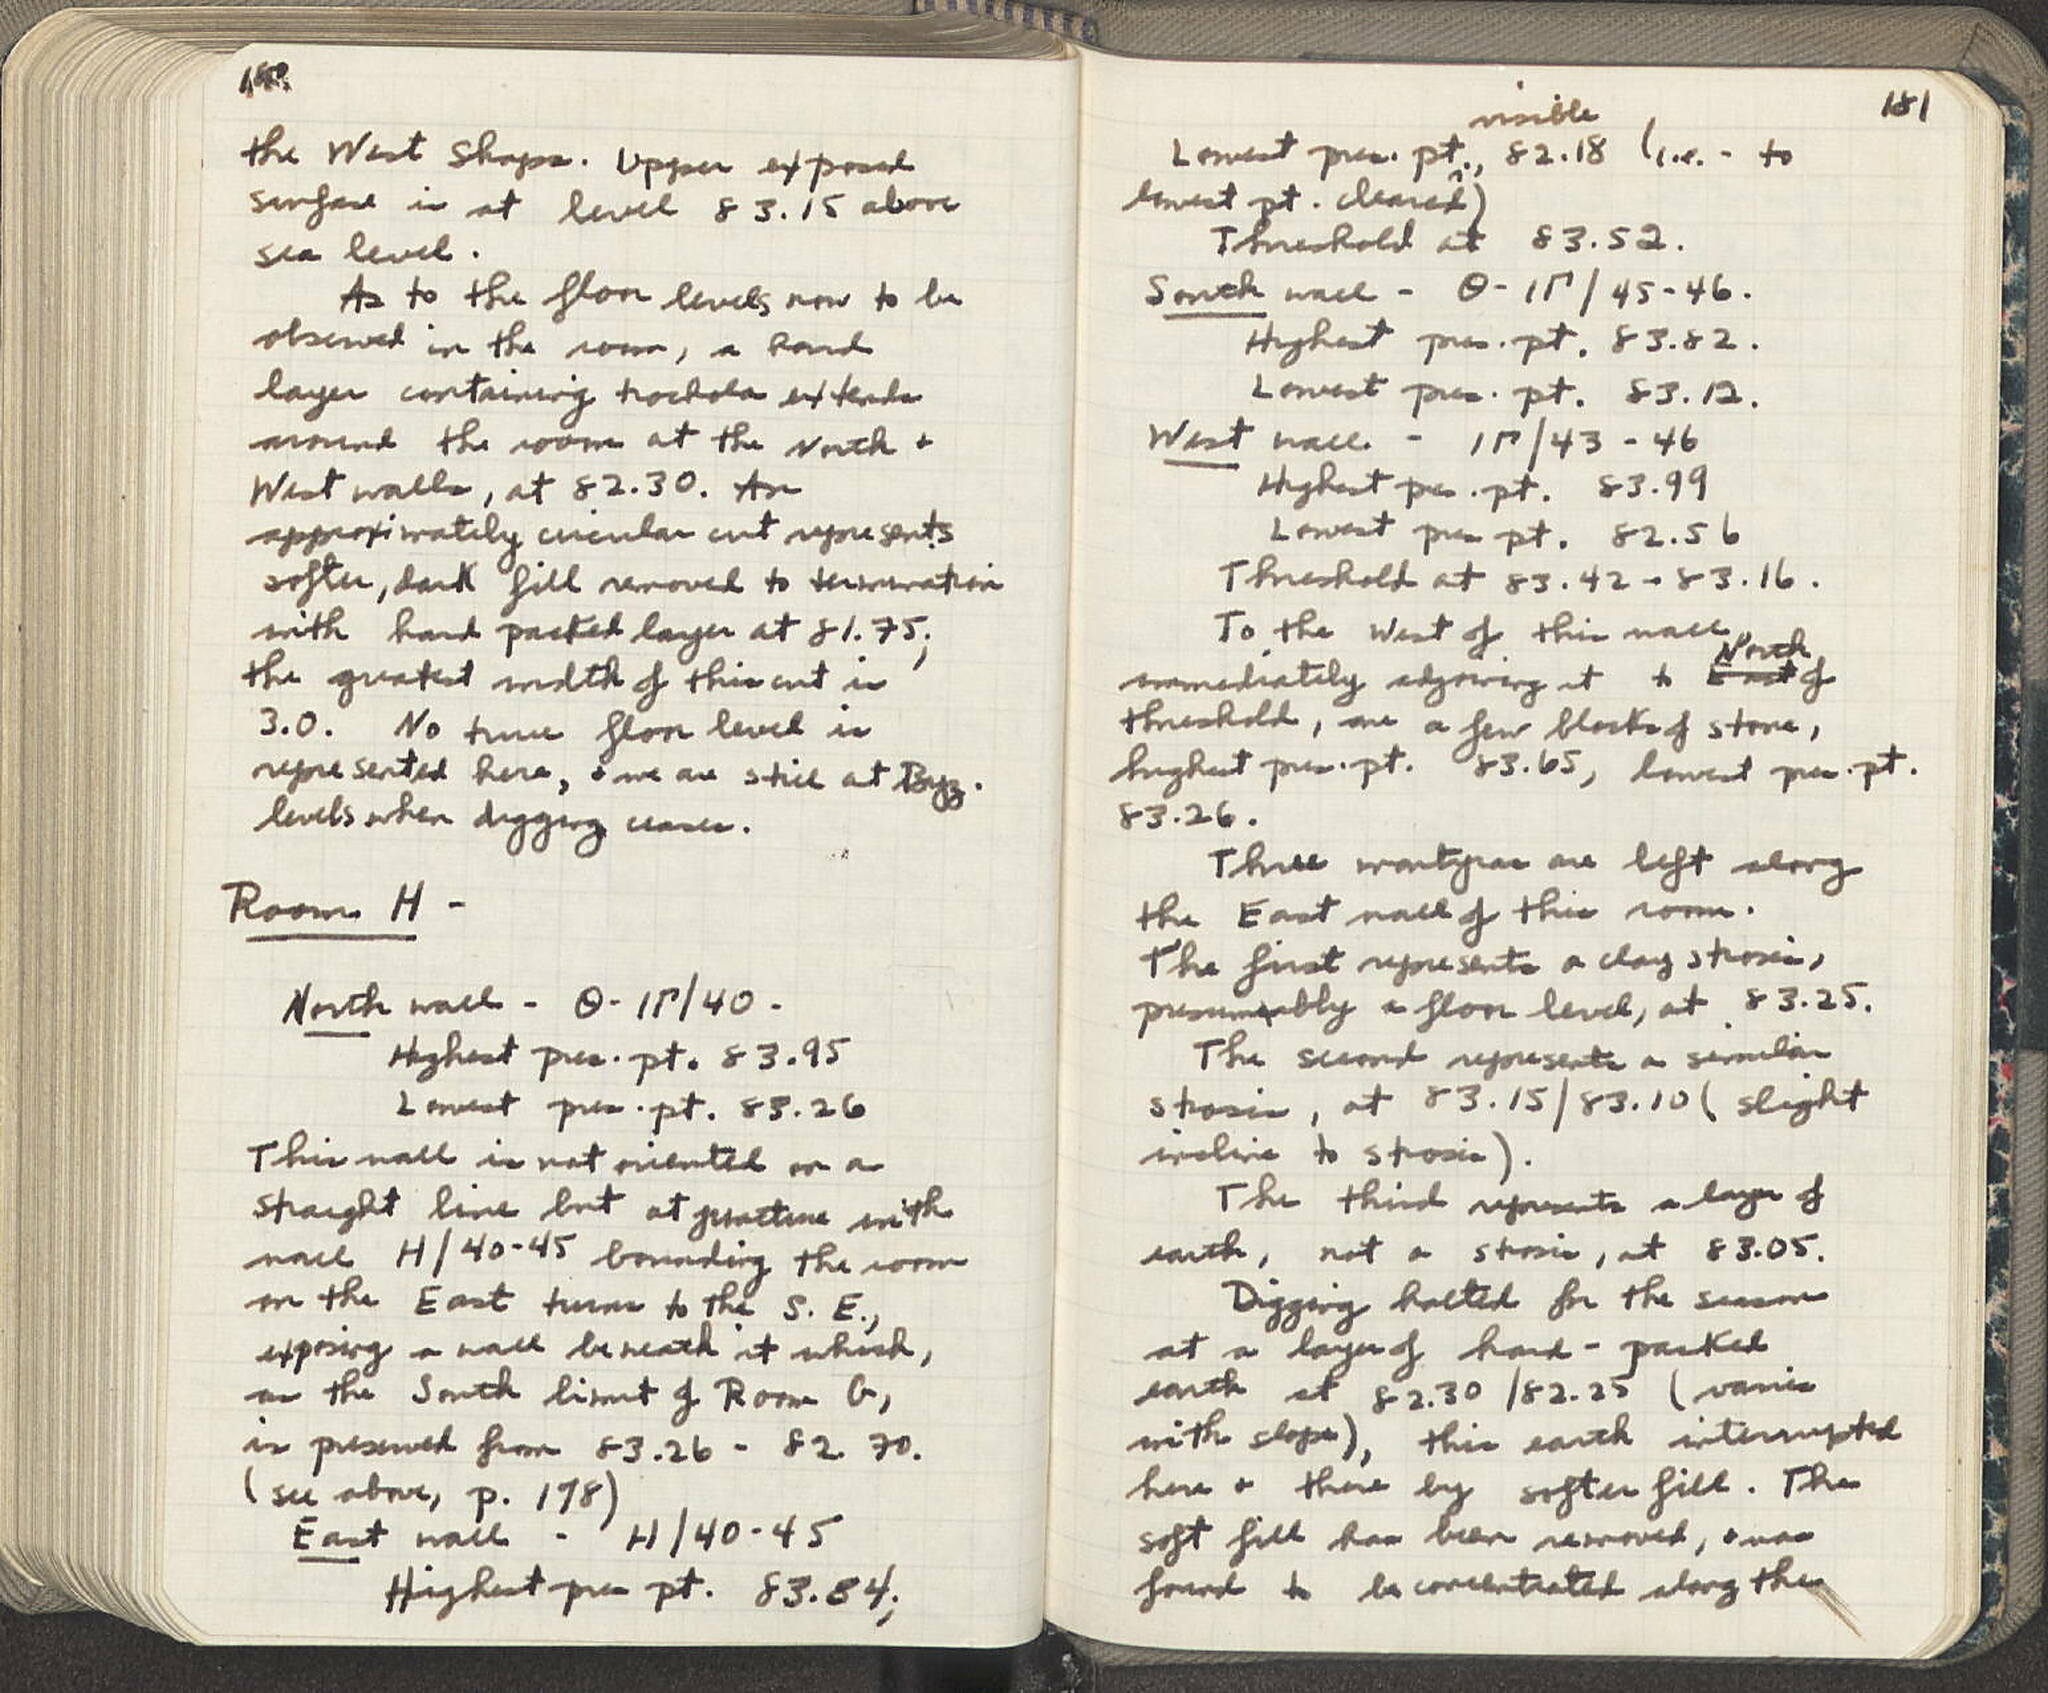 180
the West Shops. Upper exposed
surface is at level 83.15 above
sea level.
As to the floor levels now to be
observed in the room, a hard
layer containing trochala extends
around the room at the North +
West walls, at 82.30. An
approximately circular cut represents
softer, dark fill removed to termination
with hard packed layer at 81.75;
the greatest width of this cut is
3.0. No true floor level is
represented here, + we are still at Byz.
levels when digging ceases.
Room H -
North wall - Θ-ΙΓ/40 -
Highest pres. pt. 83.95
Lowest pres. pt. 83.26
This wall is not oriented on a
straight line but at juncture with
wall H/40-45 bounding the room
on the East turns to the S.E.,
exposing a wall beneath it which,
as the South limit of Room G,
is preserved from 83.26 - 82.70.
(see above, p. 178)
East wall - H/40-45
Highest pres pt. 83.84;
181
visible
Lowest pres. pt., 82.18 (i.e. - to
lowest pt. cleared)
Threshold at 83.52.
South wall - Θ-ΙΓ/45-46.
Highest pres. pt. 83.82.
Lowest pres. pt. 83.12.
West wall - ΙΓ/43-46
Highest pres. pt. 83.99
Lowest pres pt. 82.56
Threshold at 83.42 - 83.16.
To the West of this wall,
North
immediately adjoining it to East of
threshold, are a few blocks of stone,
highest pres. pt. 83.65, lowest pres. pt.
83.26.
Three martyras are left along
the East wall of this room.
The first represents a clay strosis,
presumably a floor level, at 83.25.
The second represents a similar
strosis, at 83.15/83.10 (slight
incline to strosis).
The third represents a layer of
earth, not a strosis, at 83.05.
Digging halted for the season
at a layer of hard-packed
earth at 82.30/82.25 (varies
with slope), this earth interrupted
here + there by softer fill. The
soft fill has been removed, + was
found to be concentrated along the